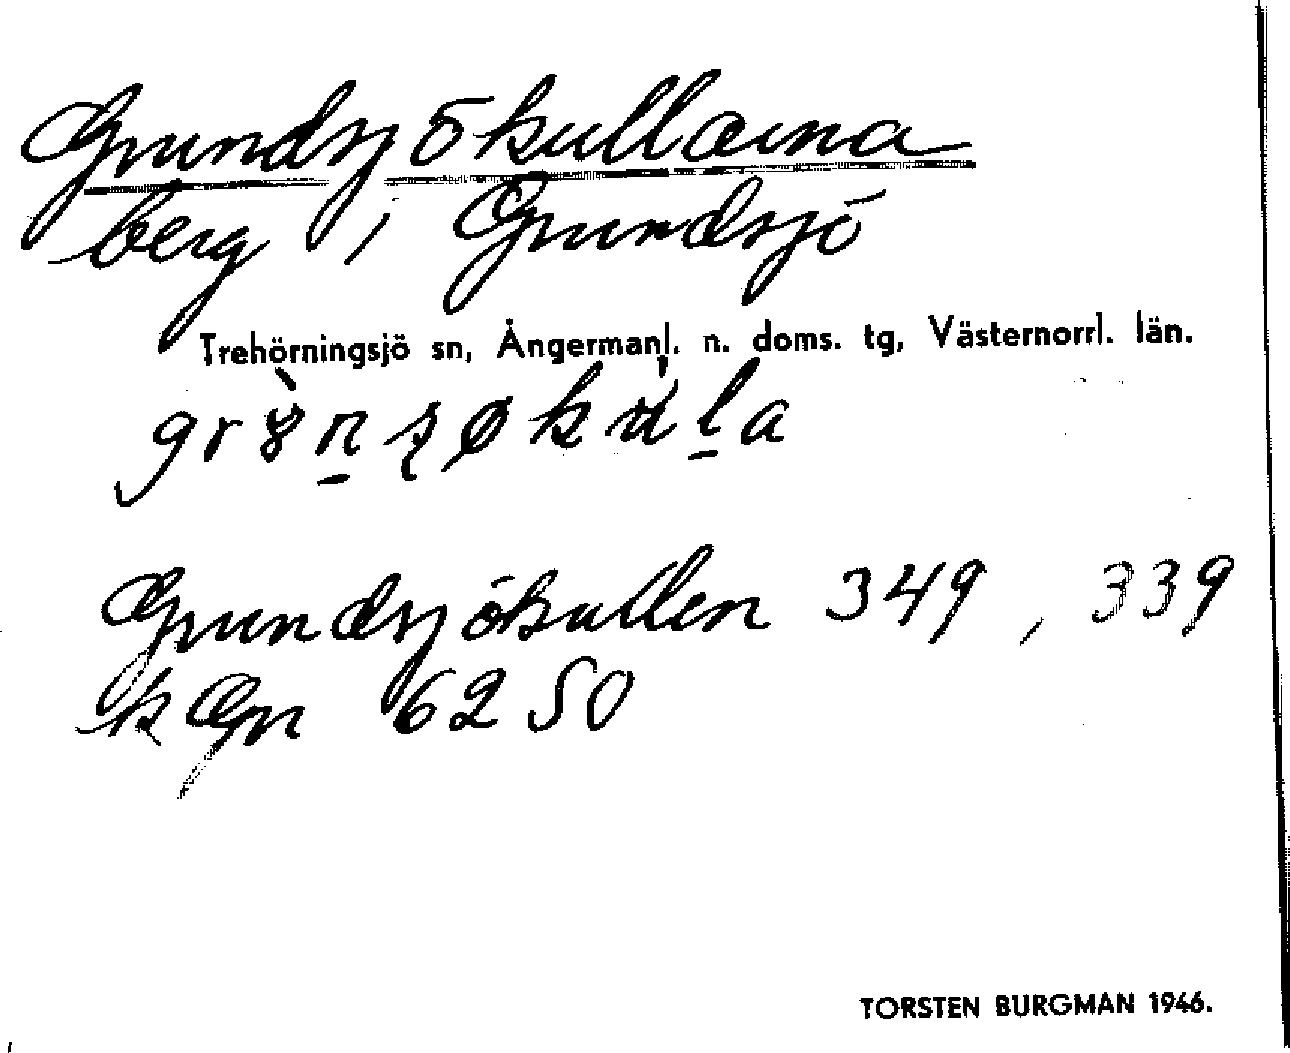 Grundsjökullarna
berg i Grundsjö
Trehörningsjö sn, Ångermanl. n. doms. tg, Västernorrl. län.
Grundsjökullen 349, 339
k Gn 6250
TORSTEN BURGMAN 1946.